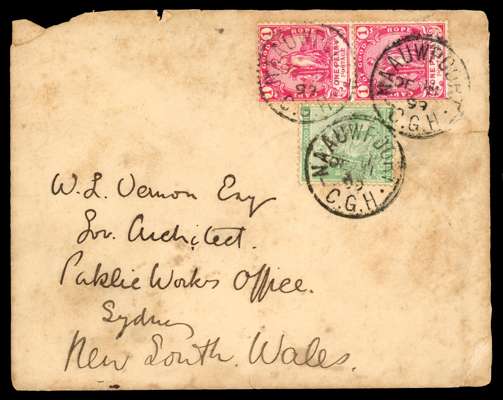 HOPE HOPE
1 1 1 1
ONE PENNY ONE PENNY
NAAUWPOORT
99
C.G.H.
NAAUWPOORT
DE
99
C.G.H.
NAAUWPOORT
DE
99
C.G.H.
W. L. Vernon Esq
Gov. Architect.
Public Works Office.
Sydney
New South Wales.